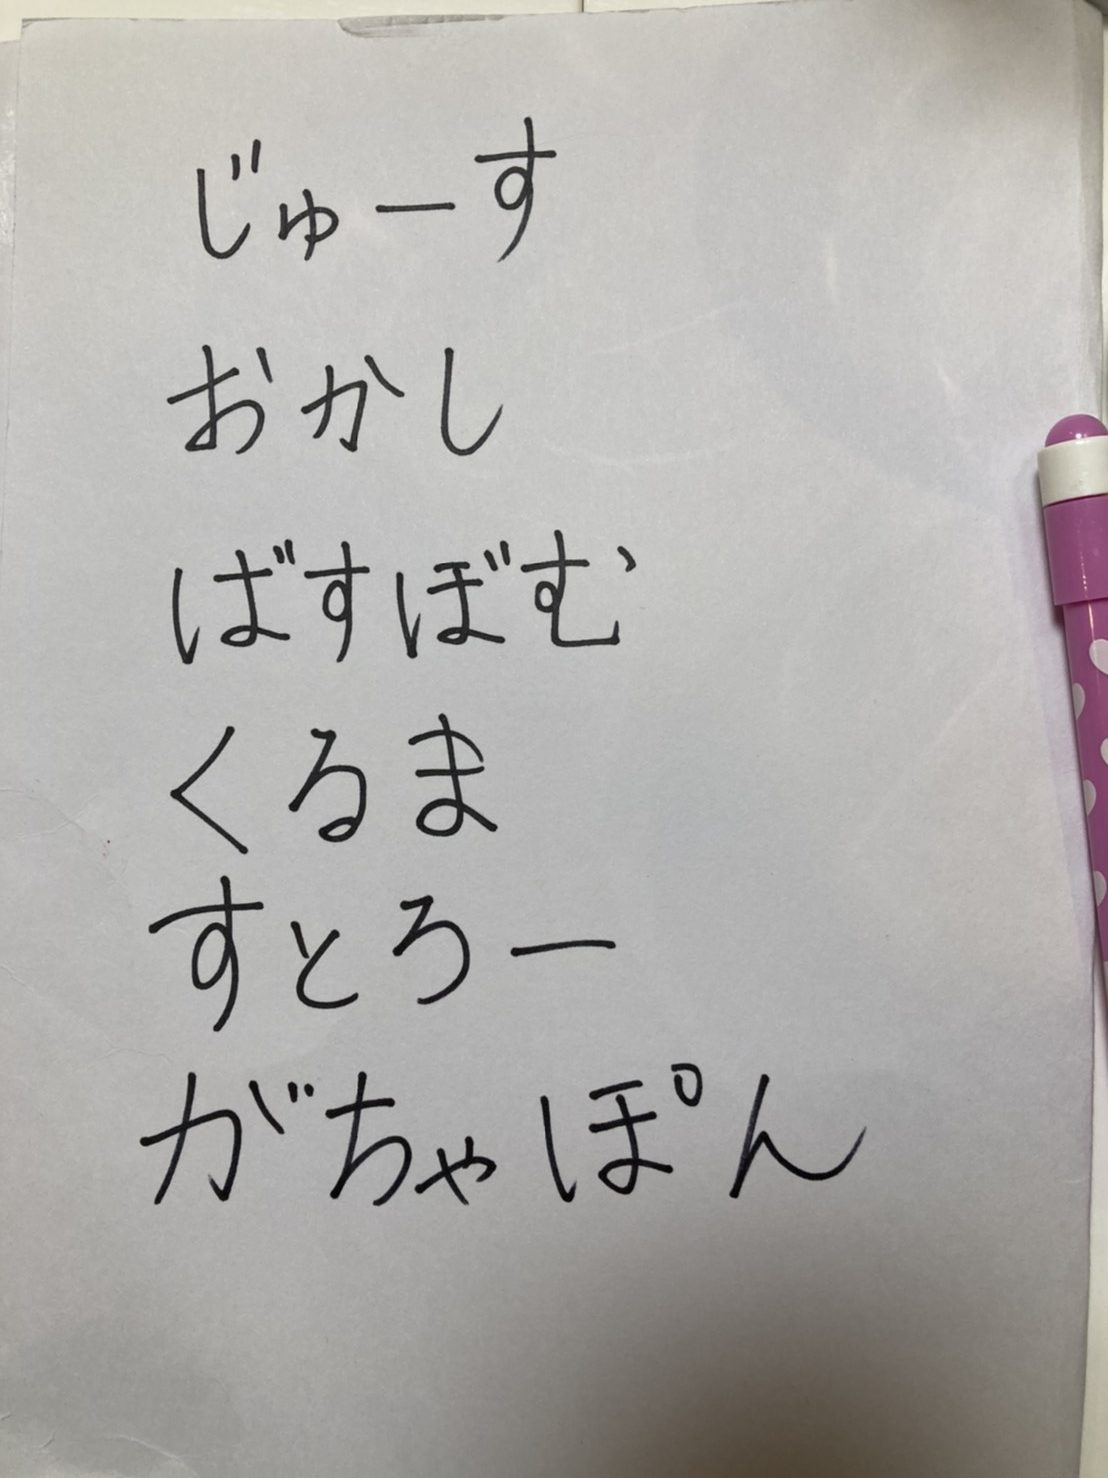 じゅーす
おかし
ばすぼむ
くるま
すとろー
がちゃぽん